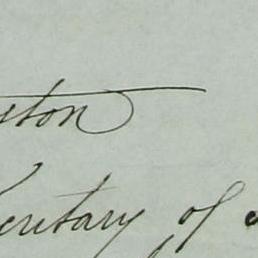 ston
Secretary of